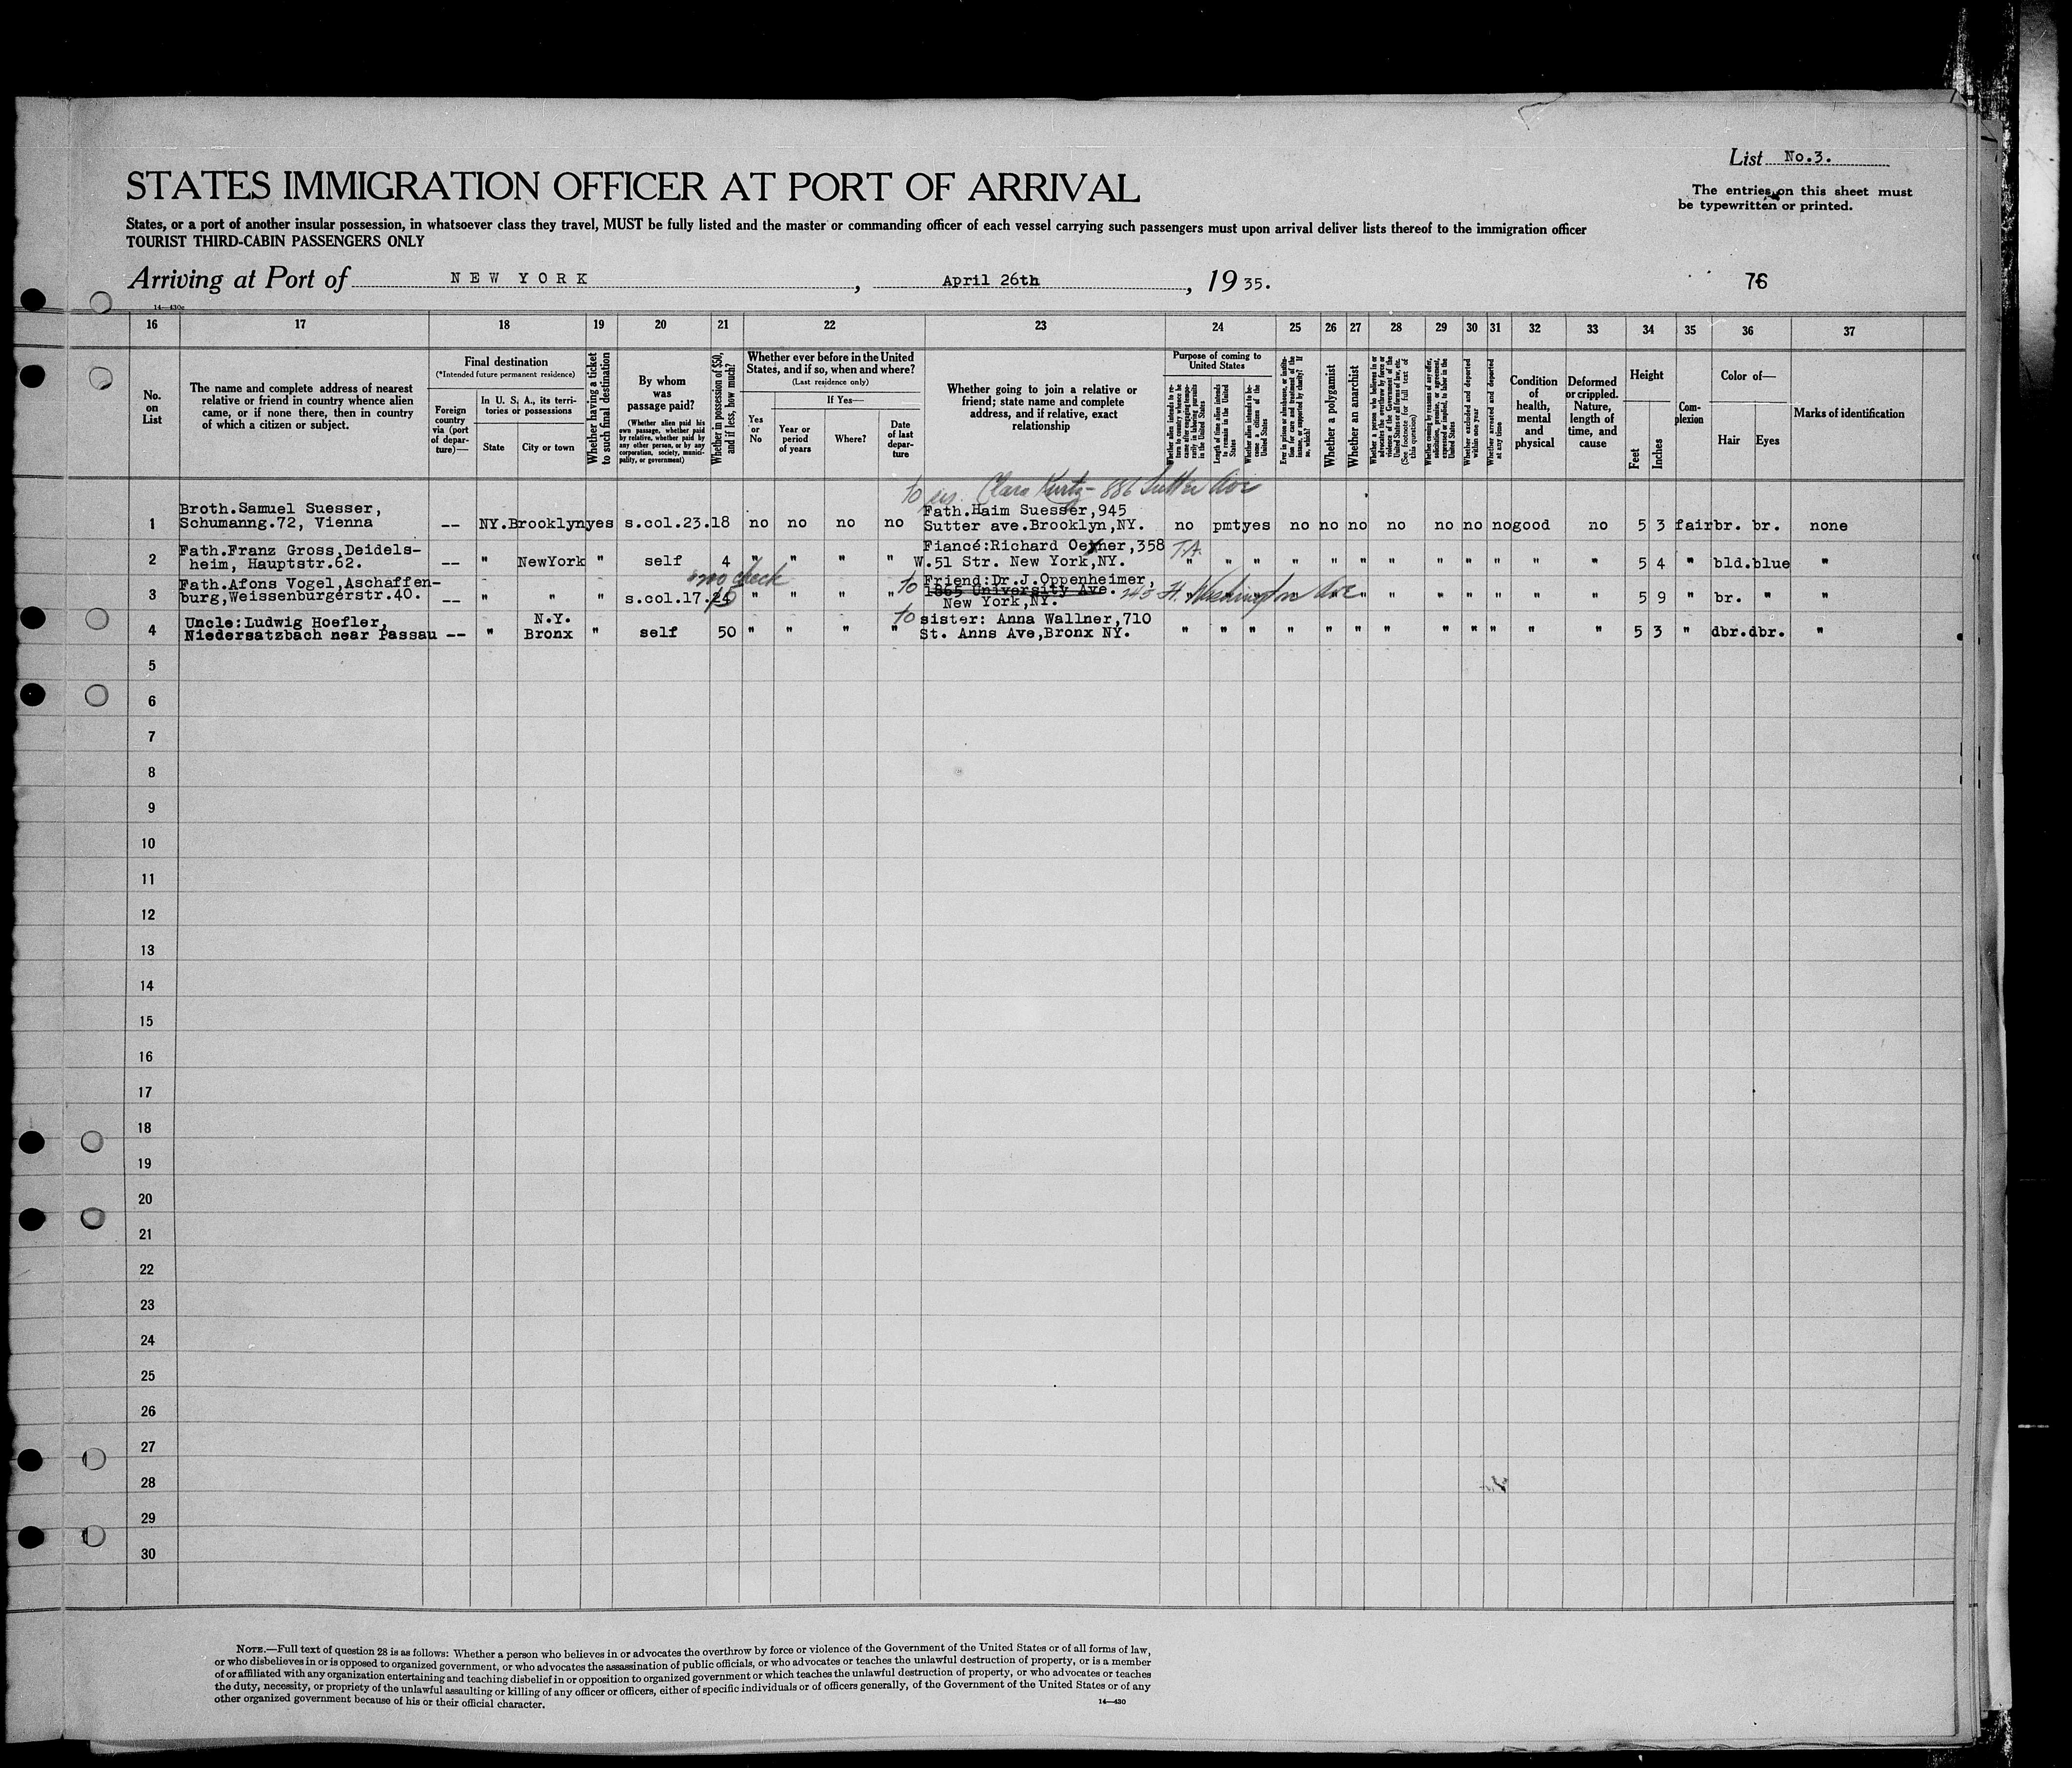 List No.3.
STATES IMMIGRATION OFFICER AT PORT OF ARRIVAL
The entries on this sheet must
be typewritten or printed.
States, or a port of another insular possession, in whatsoever class they travel, MUST be fully listed and the master or commanding officer of each vessel carrying such passengers must upon arrival deliver lists thereof to the immigration officer
TOURIST THIRD-CABIN PASSENGERS ONLY
Arriving at Port of NEW YORK, April 26th, 1935.
76
14—430c
16 17 18 19 20 21 22 23 24 25 26 27 28 29 30 31 32 33 34 35 36 37
No.
on
List
The name and complete address of nearest
relative or friend in country whence alien
came, or if none there, then in country
of which a citizen or subject.
Final destination
(*Intended future permanent residence)
Foreign
country
via (port
of depar-
ture)—
In U. S. A., its terri-
tories or possessions
State
City or town
Whether having a ticket
to such final destination
By whom
was
passage paid?
(Whether alien paid his
own passage, whether paid
by relative, whether paid by
any other person, or by any
corporation, society, munici-
pality, or government)
Whether in possession of $50,
and if less, how much?
Whether ever before in the United
States, and if so, when and where?
(Last residence only)
Yes
or
No
If Yes—
Year or
period
of years
Where?
Date
of last
depar-
ture
Whether going to join a relative or
friend; state name and complete
address, and if relative, exact
relationship
Purpose of coming to
United States
Whether alien intends to re-
turn to country whence he
came after engaging tempo-
rarily in laboring pursuits
in the United States
Length of time alien intends
to remain in the United
States
Whether alien intends to be-
come a citizen of the
United States
Ever in prison or almshouse, or institu-
tion for care and treatment of the
insane, or supported by charity? If
so, which?
Whether a polygamist
Whether an anarchist
Whether a person who believes in or
advocates the overthrow by force or
violence of the Government of the
United States or all forms of law, etc.
(See footnote for full text of
this question)
Whether coming by reason of any offer,
solicitation, promise, or agreement,
expressed or implied, to labor in the
United States
Whether excluded and deported
within one year
Whether arrested and deported
at any time
Condition
of
health,
mental
and
physical
Deformed
or crippled.
Nature,
length of
time, and
cause
Height
Feet
Inches
Com-
plexion
Color of—
Hair
Eyes
Marks of identification
to sis. Clara Kurtz - 886 Sutter Ave
Broth.Samuel Suesser, Fath.Haim Suesser,945
1 Schumanng.72, Vienna -- NY. Brooklyn yes s.col.23. 18 no no no no Sutter ave.Brooklyn,NY. no pmt yes no no no no no no no good no 5 3 fair br. br. none
Fath.Franz Gross,Deidels- Fiancé:Richard Oexner,358 T.A.
2 heim, Hauptstr.62. -- " NewYork " self 4 " " " " W.51 Str. New York,NY. " " " " " " " " " " " " 5 4 " bld. blue "
Fath.Afons Vogel,Aschaffen- no check to Friend:Dr.J.Oppenheimer,
3 burg,Weissenburgerstr.40. -- " " " s.col.17. " " " " 1865 University Ave. 245 Ft. Washington Ave " " " " " " 5 9 " br. " "
New York,NY.
Uncle:Ludwig Hoefler, N.Y. to sister: Anna Wallner,710
4 Niedersatzbach near Passau -- " Bronx " self 50 " " " " St. Anns Ave,Bronx NY. " " " " " " " " " " " " 5 3 " dbr. dbr. "
5
6
7
8
9
10
11
12
13
14
15
16
17
18
19
20
21
22
23
24
25
26
27
28
29
30
NOTE.—Full text of question 28 is as follows: Whether a person who believes in or advocates the overthrow by force or violence of the Government of the United States or of all forms of law,
or who disbelieves in or is opposed to organized government, or who advocates the assassination of public officials, or who advocates or teaches the unlawful destruction of property, or is a member
of or affiliated with any organization entertaining and teaching disbelief in or opposition to organized government or which teaches the unlawful destruction of property, or who advocates or teaches
the duty, necessity, or propriety of the unlawful assaulting or killing of any officer or officers, either of specific individuals or of officers generally, of the Government of the United States or of any
other organized government because of his or their official character.
14—430